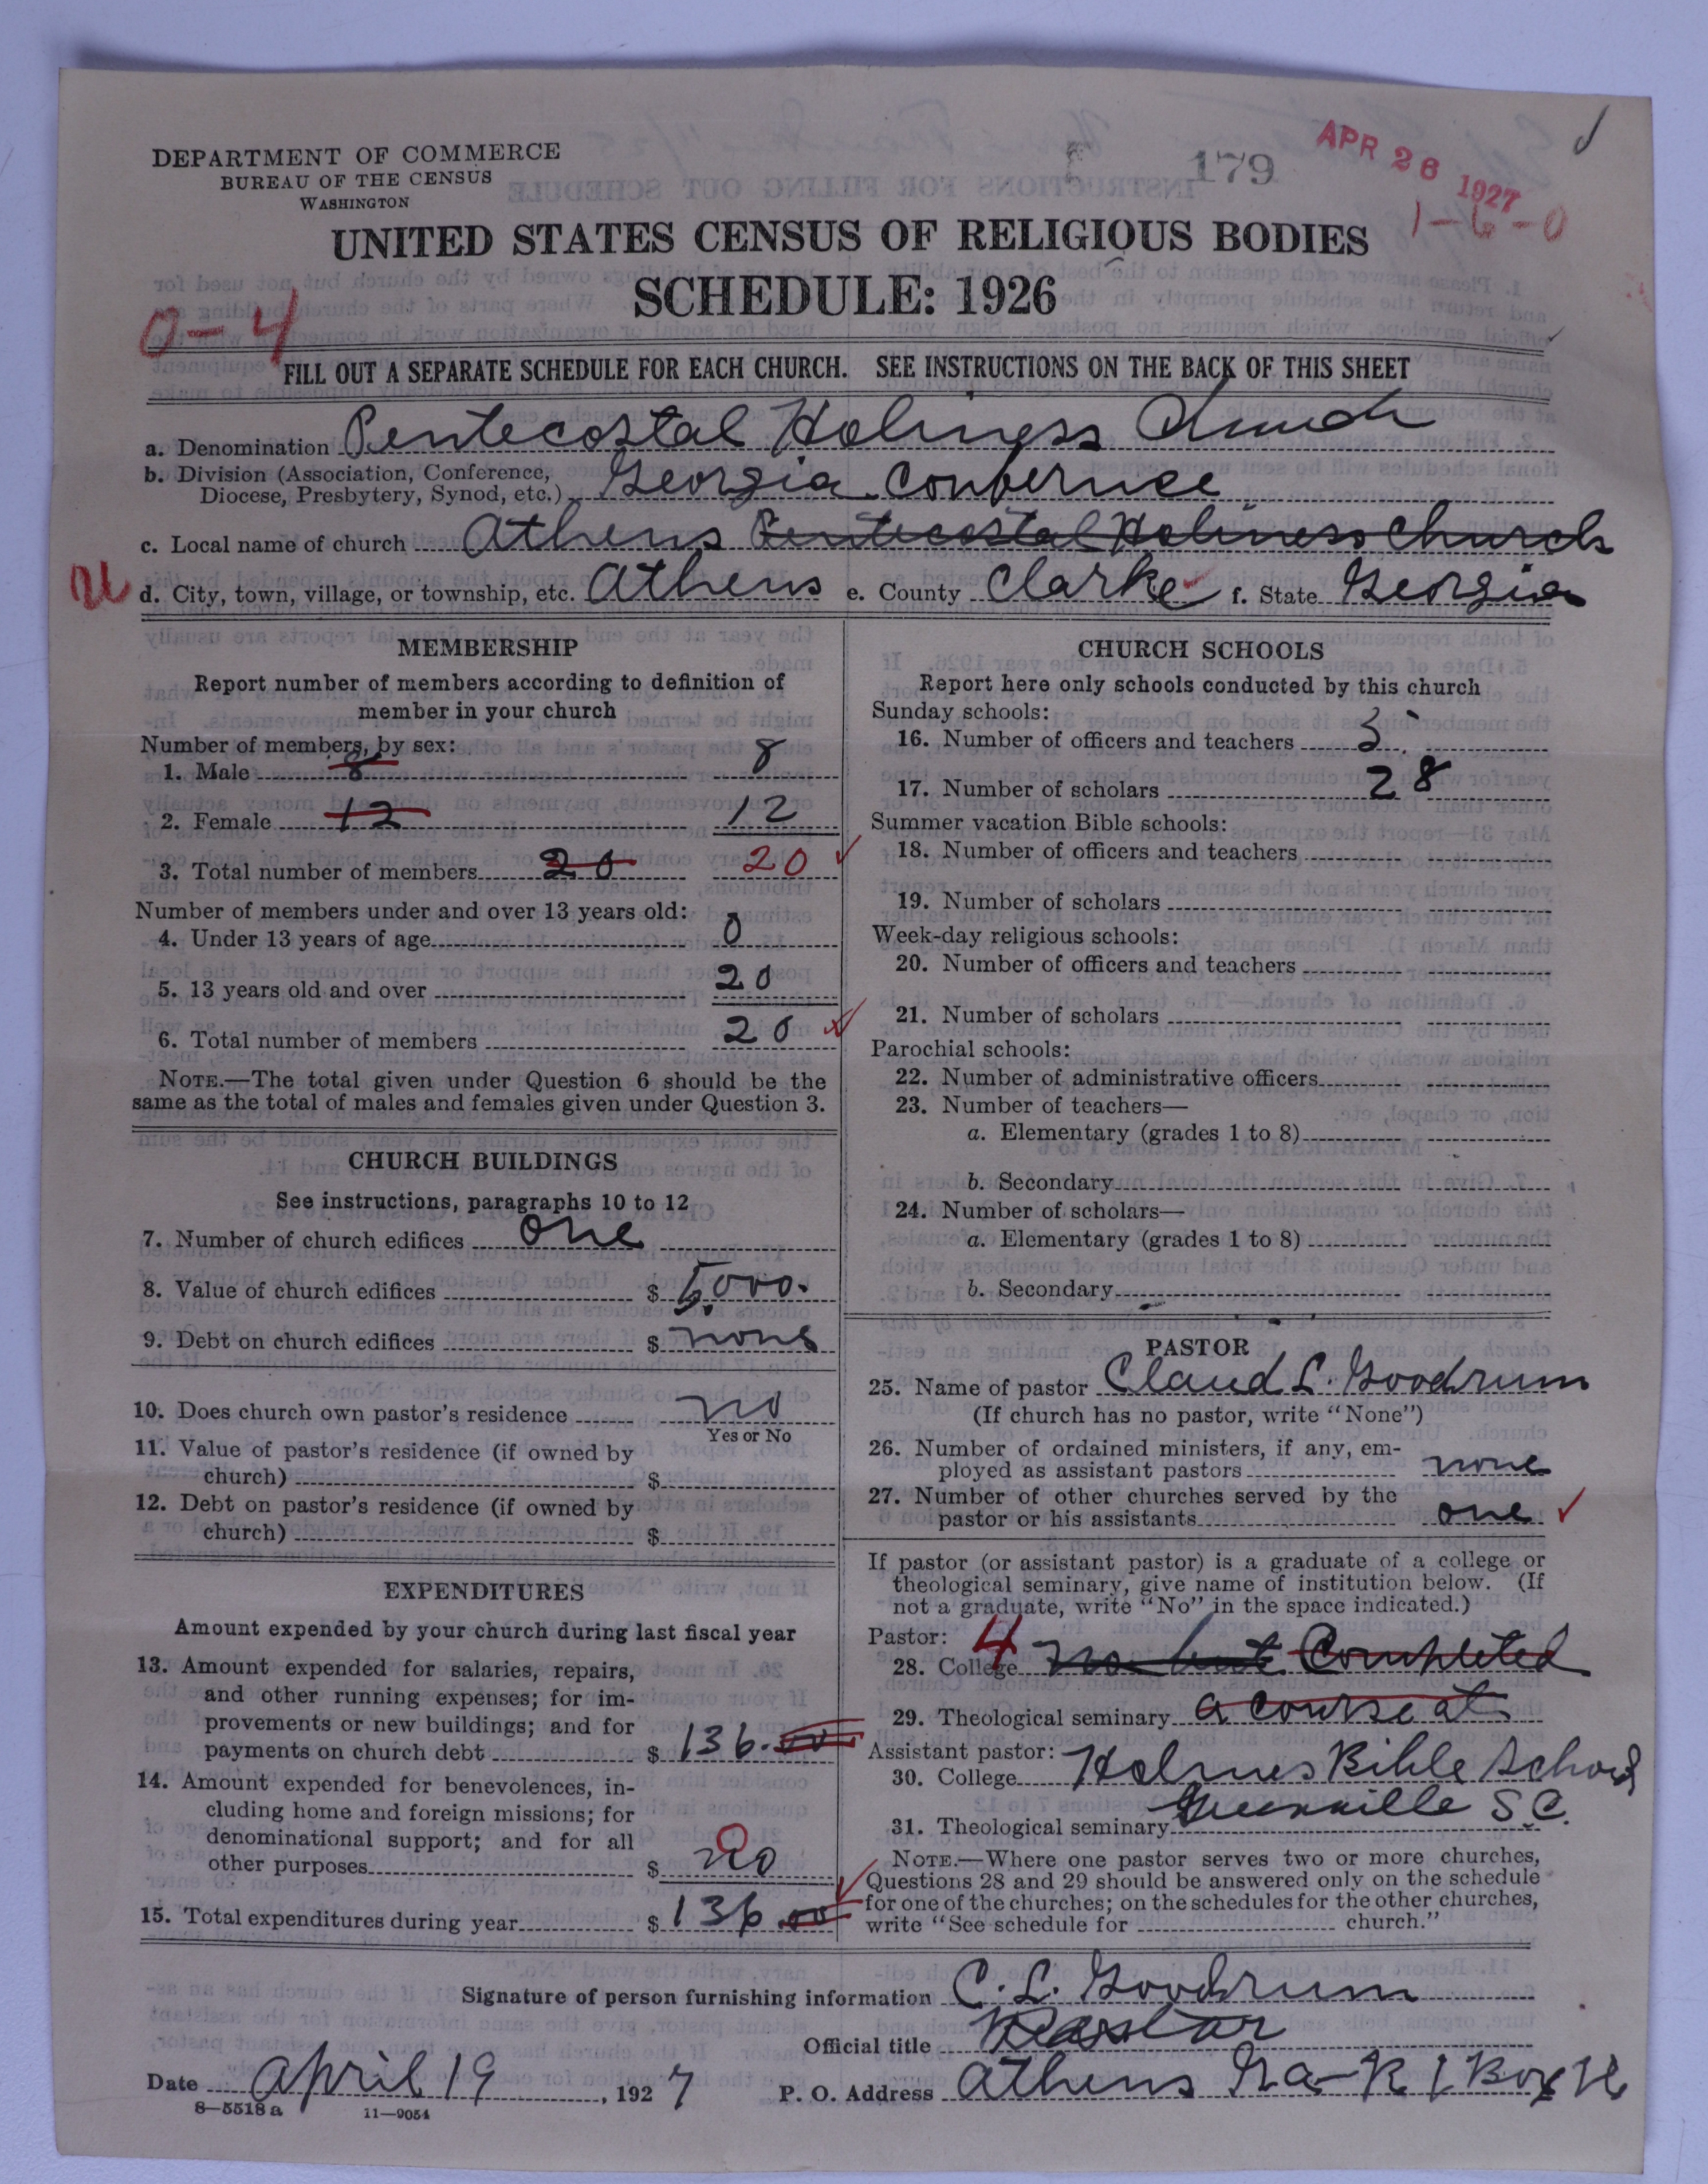 DEPARTMENT OF COMMERCE
BUREAU OF THE CENSUS
WASHINGTON
179
APR 26 1927
1-6-0
UNITED STATES CENSUS OF RELIGIOUS BODIES
SCHEDULE: 1926
0-4
FILL OUT A SEPARATE SCHEDULE FOR EACH CHURCH. SEE INSTRUCTIONS ON THE BACK OF THIS SHEET
a. Denomination Pentecostal Holiness Church
b. Division (Association, Conference,
Diocese, Presbytery, Synod, etc.) Georgia Conference
c. Local name of church Athens Pentecostal Holiness Church
d. City, town, village, or township, etc. Athens e. County Clarke f. State Georgia
MEMBERSHIP
Report number of members according to definition of
member in your church
Number of members, by sex:
1. Male 8 8
2. Female 12 12
3. Total number of members 20 20
Number of members under and over 13 years old:
4. Under 13 years of age 0
5. 13 years old and over 20
6. Total number of members 20
NOTE.—The total given under Question 6 should be the
same as the total of males and females given under Question 3.
CHURCH BUILDINGS
See instructions, paragraphs 10 to 12
7. Number of church edifices one
8. Value of church edifices $ 5,000.
9. Debt on church edifices $ none
10. Does church own pastor's residence no
Yes or No
11. Value of pastor's residence (if owned by
church) $
12. Debt on pastor's residence (if owned by
church) $
EXPENDITURES
Amount expended by your church during last fiscal year
13. Amount expended for salaries, repairs,
and other running expenses; for im-
provements or new buildings; and for
payments on church debt $ 136.00
14. Amount expended for benevolences, in-
cluding home and foreign missions; for
denominational support; and for all
other purposes $ no 0
15. Total expenditures during year $ 136.00
CHURCH SCHOOLS
Report here only schools conducted by this church
Sunday schools:
16. Number of officers and teachers 5
17. Number of scholars 28
Summer vacation Bible schools:
18. Number of officers and teachers
19. Number of scholars
Week-day religious schools:
20. Number of officers and teachers
21. Number of scholars
Parochial schools:
22. Number of administrative officers
23. Number of teachers—
a. Elementary (grades 1 to 8)
b. Secondary
24. Number of scholars—
a. Elementary (grades 1 to 8)
b. Secondary
PASTOR
25. Name of pastor Claud L. Goodrum
(If church has no pastor, write "None")
26. Number of ordained ministers, if any, em-
ployed as assistant pastors none
27. Number of other churches served by the
pastor or his assistants one
If pastor (or assistant pastor) is a graduate of a college or
theological seminary, give name of institution below. (If
not a graduate, write "No" in the space indicated.)
Pastor: 4
28. College no but Completed
29. Theological seminary a course at
Assistant pastor:
30. College Holmes Bible School
31. Theological seminary Greenville S.C.
NOTE.—Where one pastor serves two or more churches,
Questions 28 and 29 should be answered only on the schedule
for one of the churches; on the schedules for the other churches,
write "See schedule for church."
Signature of person furnishing information C. L. Goodrum
Official title Pastor
Date April 19, 1927 P. O. Address Athens Ga-R 1 Box
8—5518 a 11—9054